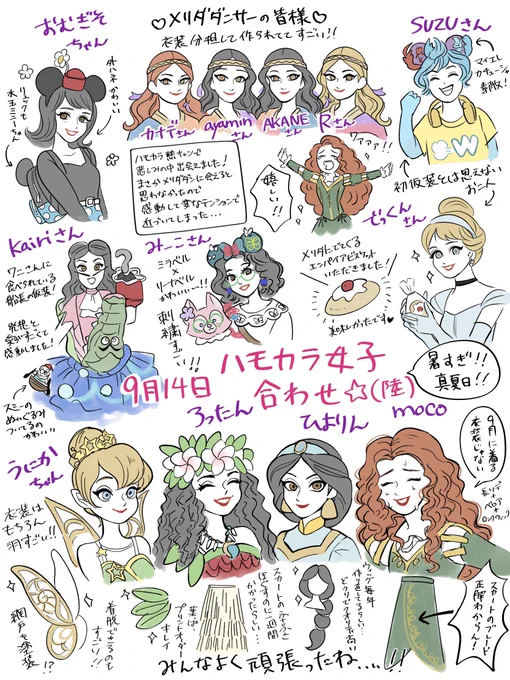 おむぎそ
ちゃん
リュックも
水玉ミニーちゃん
かわいい
♡メリダダンサーの皆様♡
衣装分担して作られててすごい!!
カナデさん
ayamin
さん
AKANE
さん
Rさん
SUZUさん
マイエレ
カチューシャ
素敵!
W
初仮装とは思えない
お二人
ハモカラ熱ナンデ
悲しみの中出会えました!
まさかメリダダンに会えると
思わなかったので
感動して変なテンションで
近づいてしまった…
ワァァァ!!
嬉しい!!
ぜっくん
さん
Kairiさん
ワニさんに
食べられている
船長の仮装!
発想と
愛がすごくて
感動しました!
スミーの
ぬいぐるみ
ついてるの
かわいい
みーこさん
ミラベル
×
リーナベル
かわいいー!!
刺繍すごい!!
メリダにでてくる
エンパイアビスケット
いただきました!
美味しかったです♥
9月14日
ハモカラ女子
合わせ☆(陸)
暑すぎ!!
真夏日!!
うにか
ちゃん
衣装は
もちろん
羽すごい!!
ろったん
ひよりん
moco
9月に着る
衣装じゃない
長リブ
ベロア
ロングウィッグ
網戸を塗装
!?
着脱できるのも
すごい!!
葉っぱ
プリーツオーダー
キレイ
スカートの
ほぐすのに一週間
かかったらしい…
ウィッグ毎年
作り直してるらしい…
どんどんクオリティが高い
スカートのブレード
正解わからん!
みんなよく頑張ったね…!!